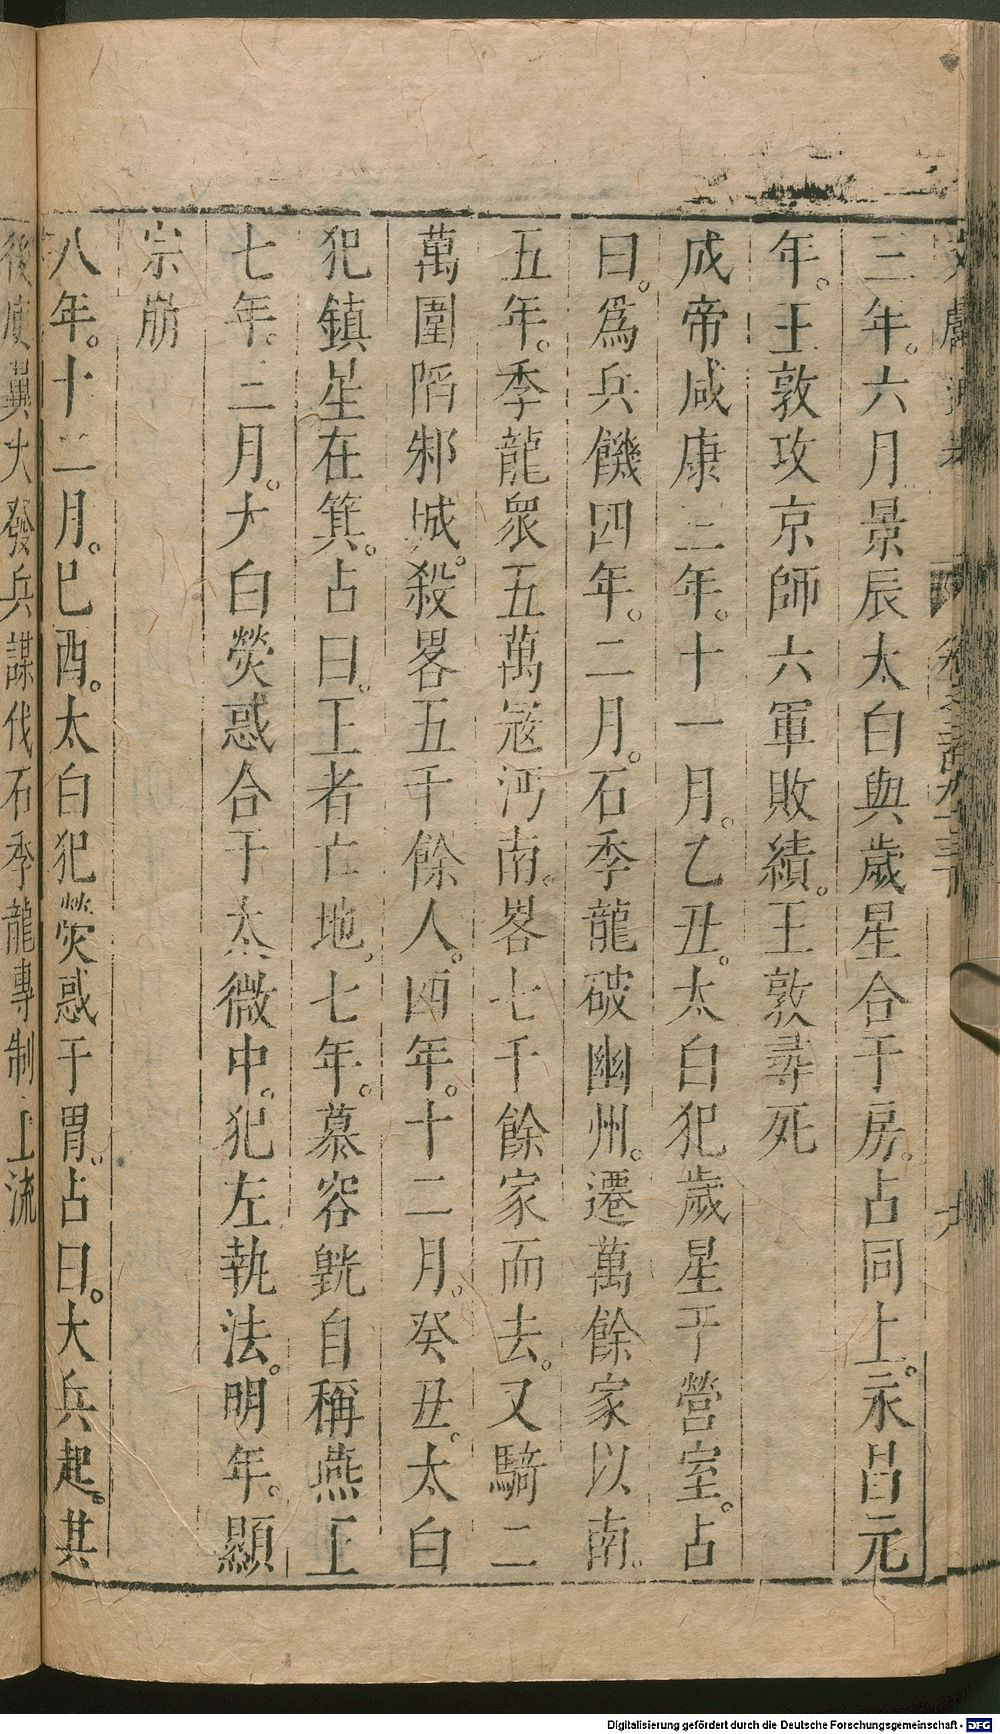 三年。六月景辰太白與歲星合于房。占同上。永昌元
年。王敦攻京師六軍敗績。王敦尋死
成帝咸康三年。十一月。乙丑。太白犯歲星于營室。占
曰。爲兵饑四年。二月。石季龍破幽州。遷萬餘家以南。
五年。季龍衆五萬冦沔南。畧七千餘家而去。又騎二
萬圍陷邾城。殺畧五千餘人。四年。十二月。癸丑。太白
犯鎮星在箕。占曰。王者亡地。七年。慕容皝自稱燕王
七年。三月。太白熒惑合于太微中。犯左執法。明年。顯
宗崩
八年。十二月。已酉。太白犯熒惑于胃。占曰。大兵起。其
後庾翼大發兵謀伐石季龍專制上流
Digitalisierung gefördert durch die Deutsche Forschungsgemeinschaft - DFG